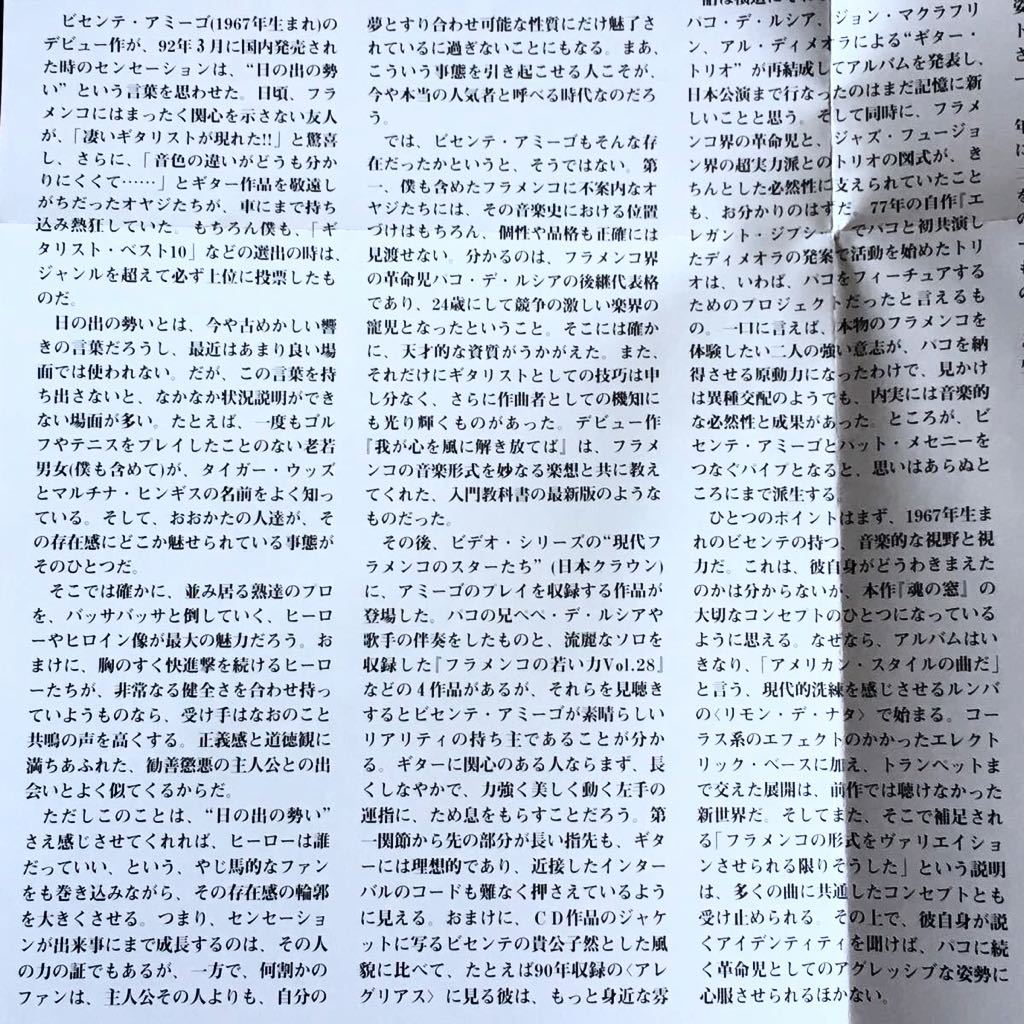 ビセンテ・アミーゴ(1967年生まれ)の
デビュー作が、92年3月に国内発売され
た時のセンセーションは、“日の出の勢
い”という言葉を思わせた。日頃、フラ
メンコにはまったく関心を示さない友人
が、「凄いギタリストが現れた!!」と驚喜
し、さらに、「音色の違いがどうも分か
りにくくて……」とギター作品を敬遠し
がちだったオヤジたちが、車にまで持ち
込み熱狂していた。もちろん僕も、「ギ
タリスト・ベスト10」などの選出の時は、
ジャンルを超えて必ず上位に投票したも
のだ。
日の出の勢いとは、今や古めかしい響
きの言葉だろうし、最近はあまり良い場
面では使われない。だが、この言葉を持
ち出さないと、なかなか状況説明ができ
ない場面が多い。たとえば、一度もゴル
フやテニスをプレイしたことのない老若
男女(僕も含めて)が、タイガー・ウッズ
とマルチナ・ヒンギスの名前をよく知っ
ている。そして、おおかたの人達が、そ
の存在感にどこか魅せられている事態が
そのひとつだ。
そこでは確かに、並み居る熟達のプロ
を、バッサバッサと倒していく、ヒーロ
ーやヒロイン像が最大の魅力だろう。お
まけに、胸のすく快進撃を続けるヒーロ
ーたちが、非常なる健全さを合わせ持っ
ていようものなら、受け手はなおのこと
共鳴の声を高くする。正義感と道徳観に
満ちあふれた、勧善懲悪の主人公との出
会いとよく似てくるからだ。
ただしこのことは、“日の出の勢い”
さえ感じさせてくれれば、ヒーローは誰
だっていい、という、やじ馬的なファン
をも巻き込みながら、その存在感の輪郭
を大きくさせる。つまり、センセーショ
ンが出来事にまで成長するのは、その人
の力の証でもあるが、一方で、何割かの
ファンは、主人公その人よりも、自分の
夢とすり合わせ可能な性質にだけ魅了さ
れているに過ぎないことにもなる。まあ、
こういう事態を引き起こせる人こそが、
今や本当の人気者と呼べる時代なのだろ
う。
では、ビセンテ・アミーゴもそんな存
在だったかというと、そうではない。第
一、僕も含めたフラメンコに不案内なオ
ヤジたちには、その音楽史における位置
づけはもちろん、個性や品格も正確には
見渡せない。分かるのは、フラメンコ界
の革命児パコ・デ・ルシアの後継代表格
であり、24歳にして競争の激しい楽界の
寵児となったということ。そこには確か
に、天才的な資質がうかがえた。また、
それだけにギタリストとしての技巧は申
し分なく、さらに作曲者としての機知に
も光り輝くものがあった。デビュー作
『我が心を風に解き放てば』は、フラメ
ンコの音楽形式を妙なる楽想と共に教え
てくれた、入門教科書の最新版のような
ものだった。
その後、ビデオ・シリーズの“現代フ
ラメンコのスターたち”(日本クラウン)
に、アミーゴのプレイを収録する作品が
登場した。パコの兄ペペ・デ・ルシアや
歌手の伴奏をしたものと、流麗なソロを
収録した『フラメンコの若い力Vol.28』
などの4作品があるが、それらを見聴き
するとビセンテ・アミーゴが素晴らしい
リアリティの持ち主であることが分か
る。ギターに関心のある人ならまず、長
くしなやかで、力強く美しく動く左手の
運指に、ため息をもらすことだろう。第
一関節から先の部分が長い指先も、ギタ
ーには理想的であり、近接したインター
バルのコードも難なく押さえているよう
に見える。おまけに、CD作品のジャケ
ットに写るビセンテの貴公子然とした風
貌に比べて、たとえば90年収録の〈アレ
グリアス〉に見る彼は、もっと身近な雰
パコ・デ・ルシア、ジョン・マクラフリ
ン、アル・ディメオラによる“ギター・
トリオ”が再結成してアルバムを発表し、
日本公演まで行なったのはまだ記憶に新
しいことと思う。そして同時に、フラメ
ンコ界の革命児と、ジャズ・フュージョ
ン界の超実力派とのトリオの図式が、き
ちんとした必然性に支えられていたこと
も、お分かりのはずだ。77年の自作『エ
レガント・ジプシー』でパコと初共演し
たディメオラの発案で活動を始めたトリ
オは、いわば、パコをフィーチュアする
ためのプロジェクトだったと言えるも
の。一口に言えば、本物のフラメンコを
体験したい二人の強い意志が、パコを納
得させる原動力になったわけで、見かけ
は異種交配のようでも、内実には音楽的
な必然性と成果があった。ところが、ビ
センテ・アミーゴとパット・メセニーを
つなぐパイプとなると、思いはあらぬと
ころにまで派生する。
ひとつのポイントはまず、1967年生ま
れのビセンテの持つ、音楽的な視野と視
力だ。これは、彼自身がどうわきまえた
のかは分からないが、本作『魂の窓』の
大切なコンセプトのひとつになっている
ように思える。なぜなら、アルバムはい
きなり、「アメリカン・スタイルの曲だ」
と言う、現代的洗練を感じさせるルンバ
の〈リモン・デ・ナタ〉で始まる。コー
ラス系のエフェクトのかかったエレクト
リック・ベースに加え、トランペットま
で交えた展開は、前作では聴けなかった
新世界だ。そしてまた、そこで補足され
る「フラメンコの形式をヴァリエイショ
ンさせられる限りそうした」という説明
は、多くの曲に共通したコンセプトとも
受け止められる。その上で、彼自身が説
くアイデンティティを聞けば、パコに続
く革命児としてのアグレッシブな姿勢に
心服させられるほかない。